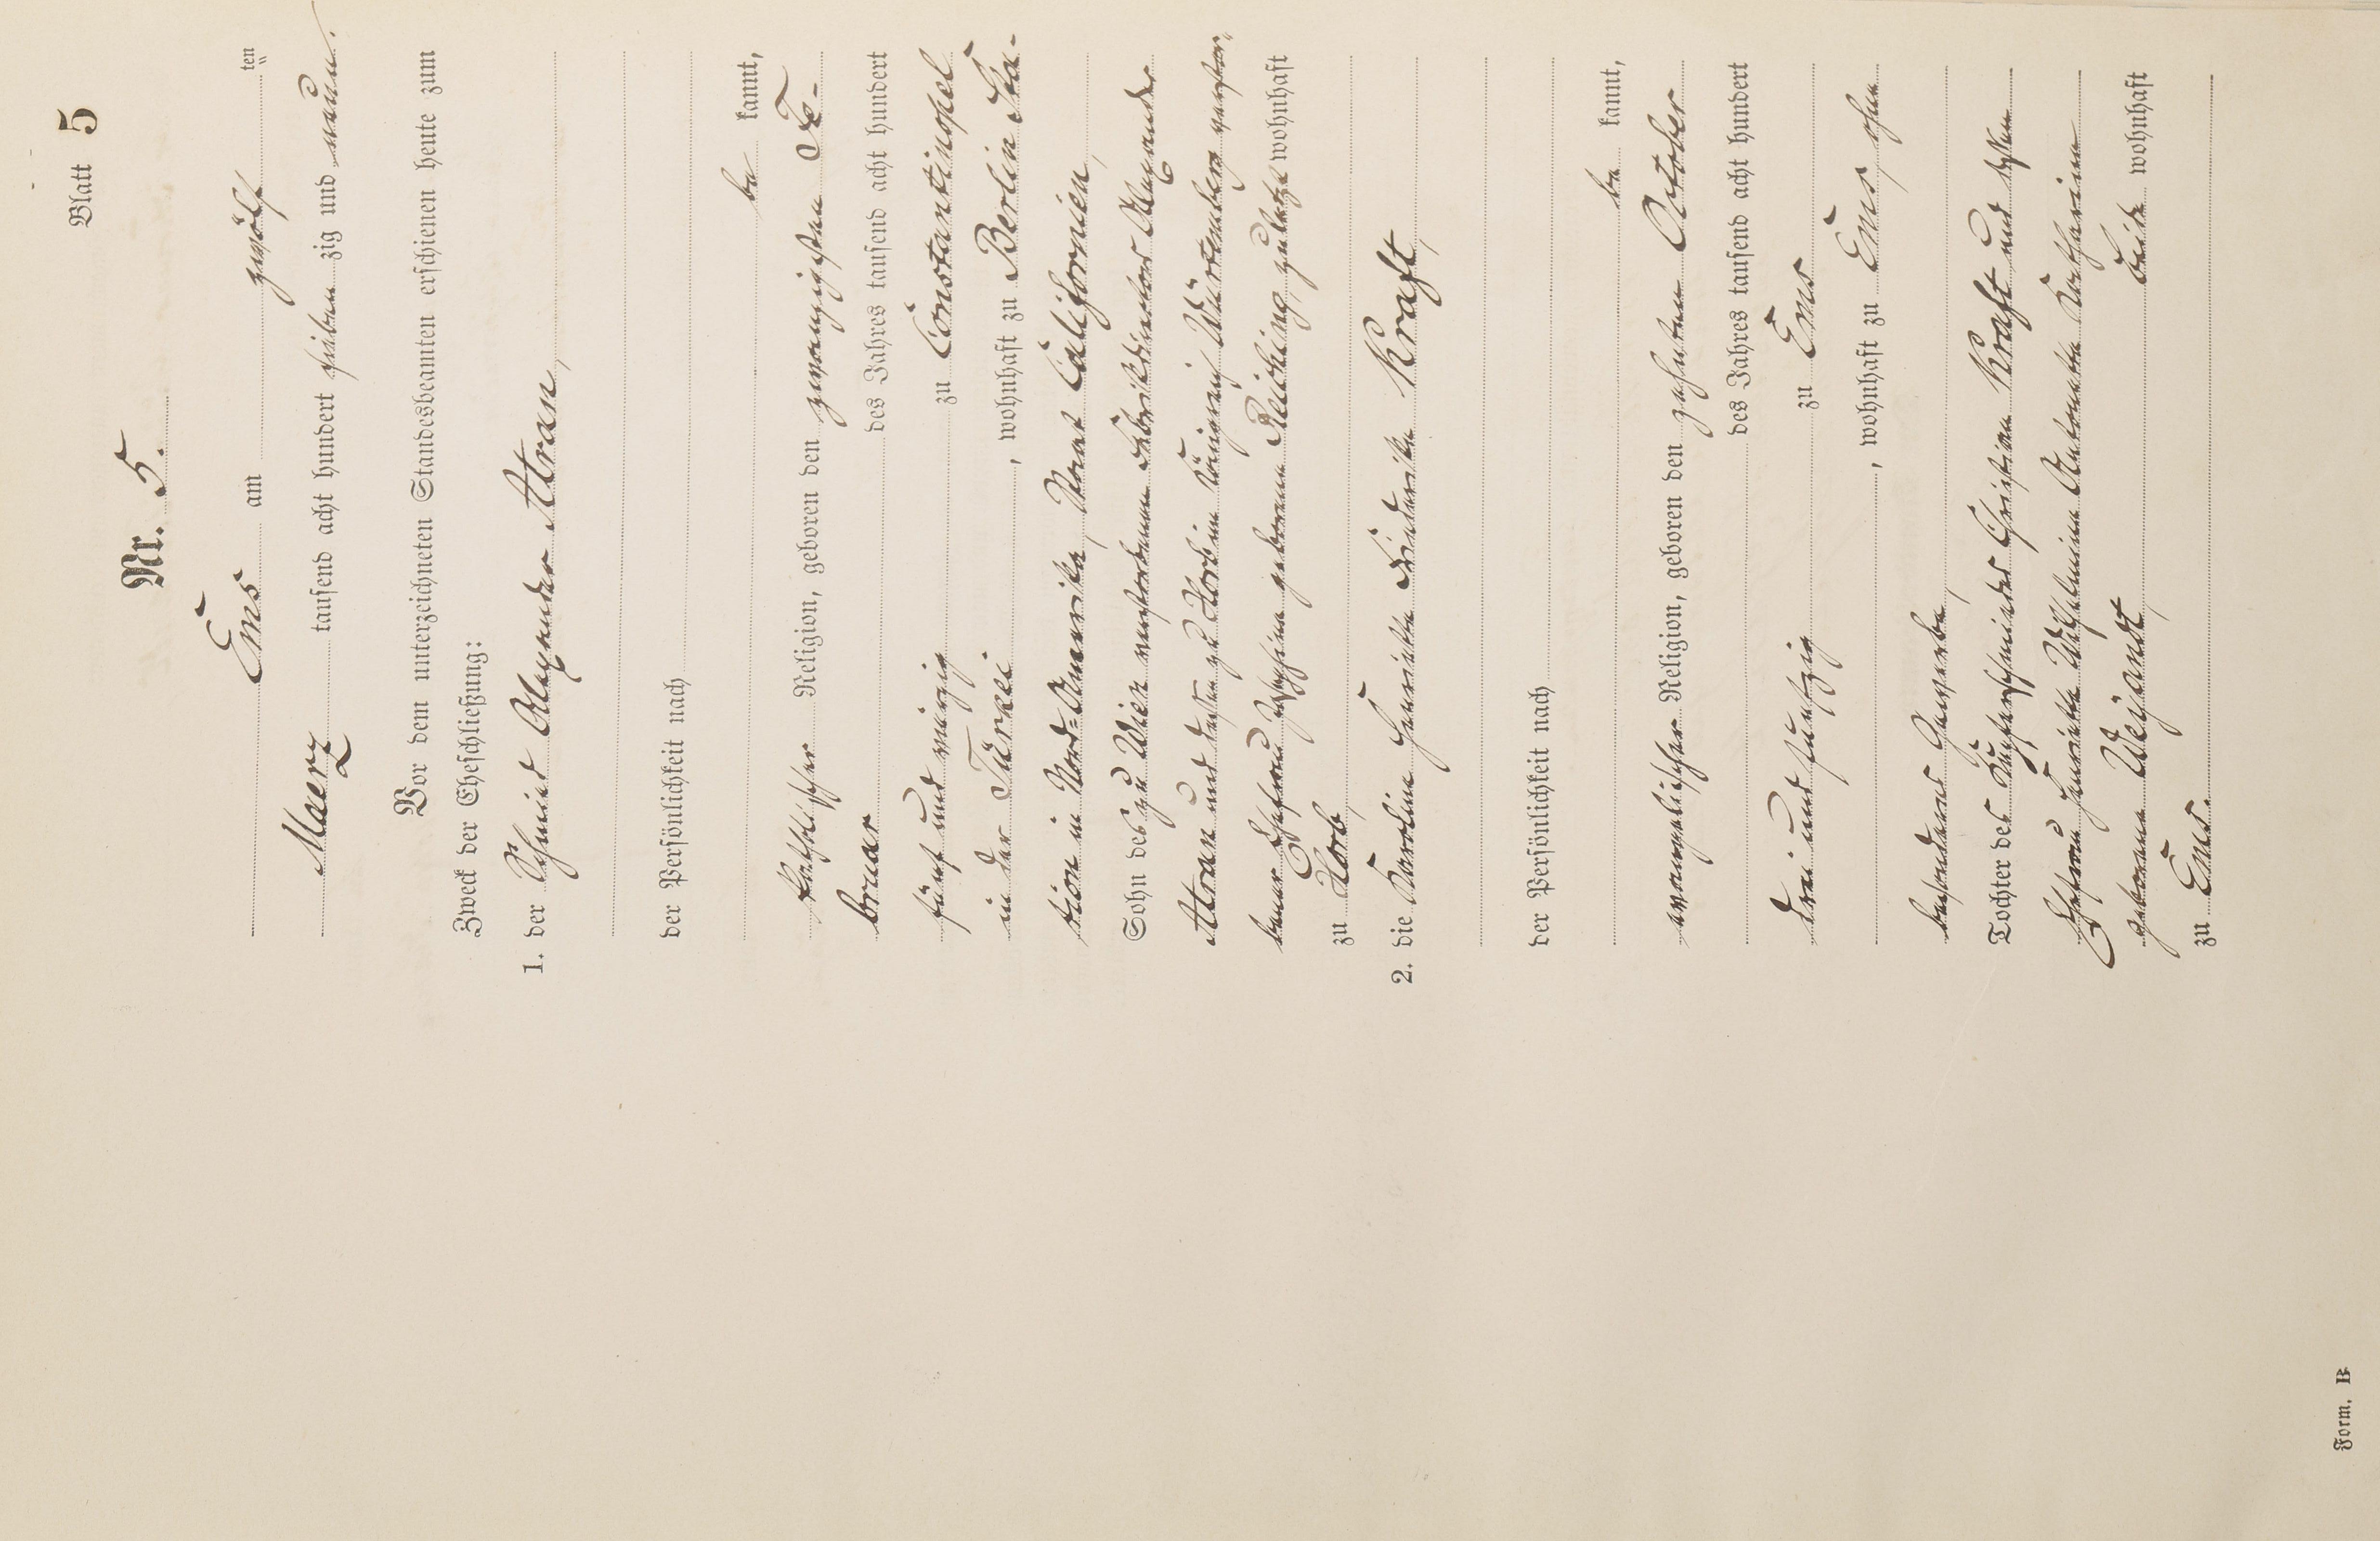 Blatt 5
Nr. 5.
Ems am zwölf ten
Maerz tausend acht hundert sieben zig und neun.
Vor dem unterzeichneten Standesbeamten erschienen heute zum
Zweck der Eheschließung:
1. der Schmied Alexander Atran,
der Persönlichkeit nach
be kannt,
katholischer Religion, geboren den zwanzigsten Fe-
bruar des Jahres tausend acht hundert
fünf und vierzig zu Constantinopel
in der Türkei, wohnhaft zu Berlin Sta-
tion in Nord-Amerika, Staat Californien,
Sohn des zu Wien verstorbenen Fabrikdirectors Alexander
Atran und dessen zu Horb im Königreich Würtemberg verstor-
bener Ehefrau Josephine geborene Reiching, zuletzt wohnhaft
zu Horb,
2. die Karoline Henriette Friederike Kraft,
der Persönlichkeit nach
be kannt,
evangelischer Religion, geboren den zehnten October
des Jahres tausend acht hundert
drei und fünfzig zu Ems
, wohnhaft zu Ems, ohne
besonderes Gewerbe,
Tochter des Christian Kraft und dessen
Ehefrau Henriette Wilhelmine Antonette Katharina
geborene Weijandt, beide wohnhaft
zu Ems.
Form. B